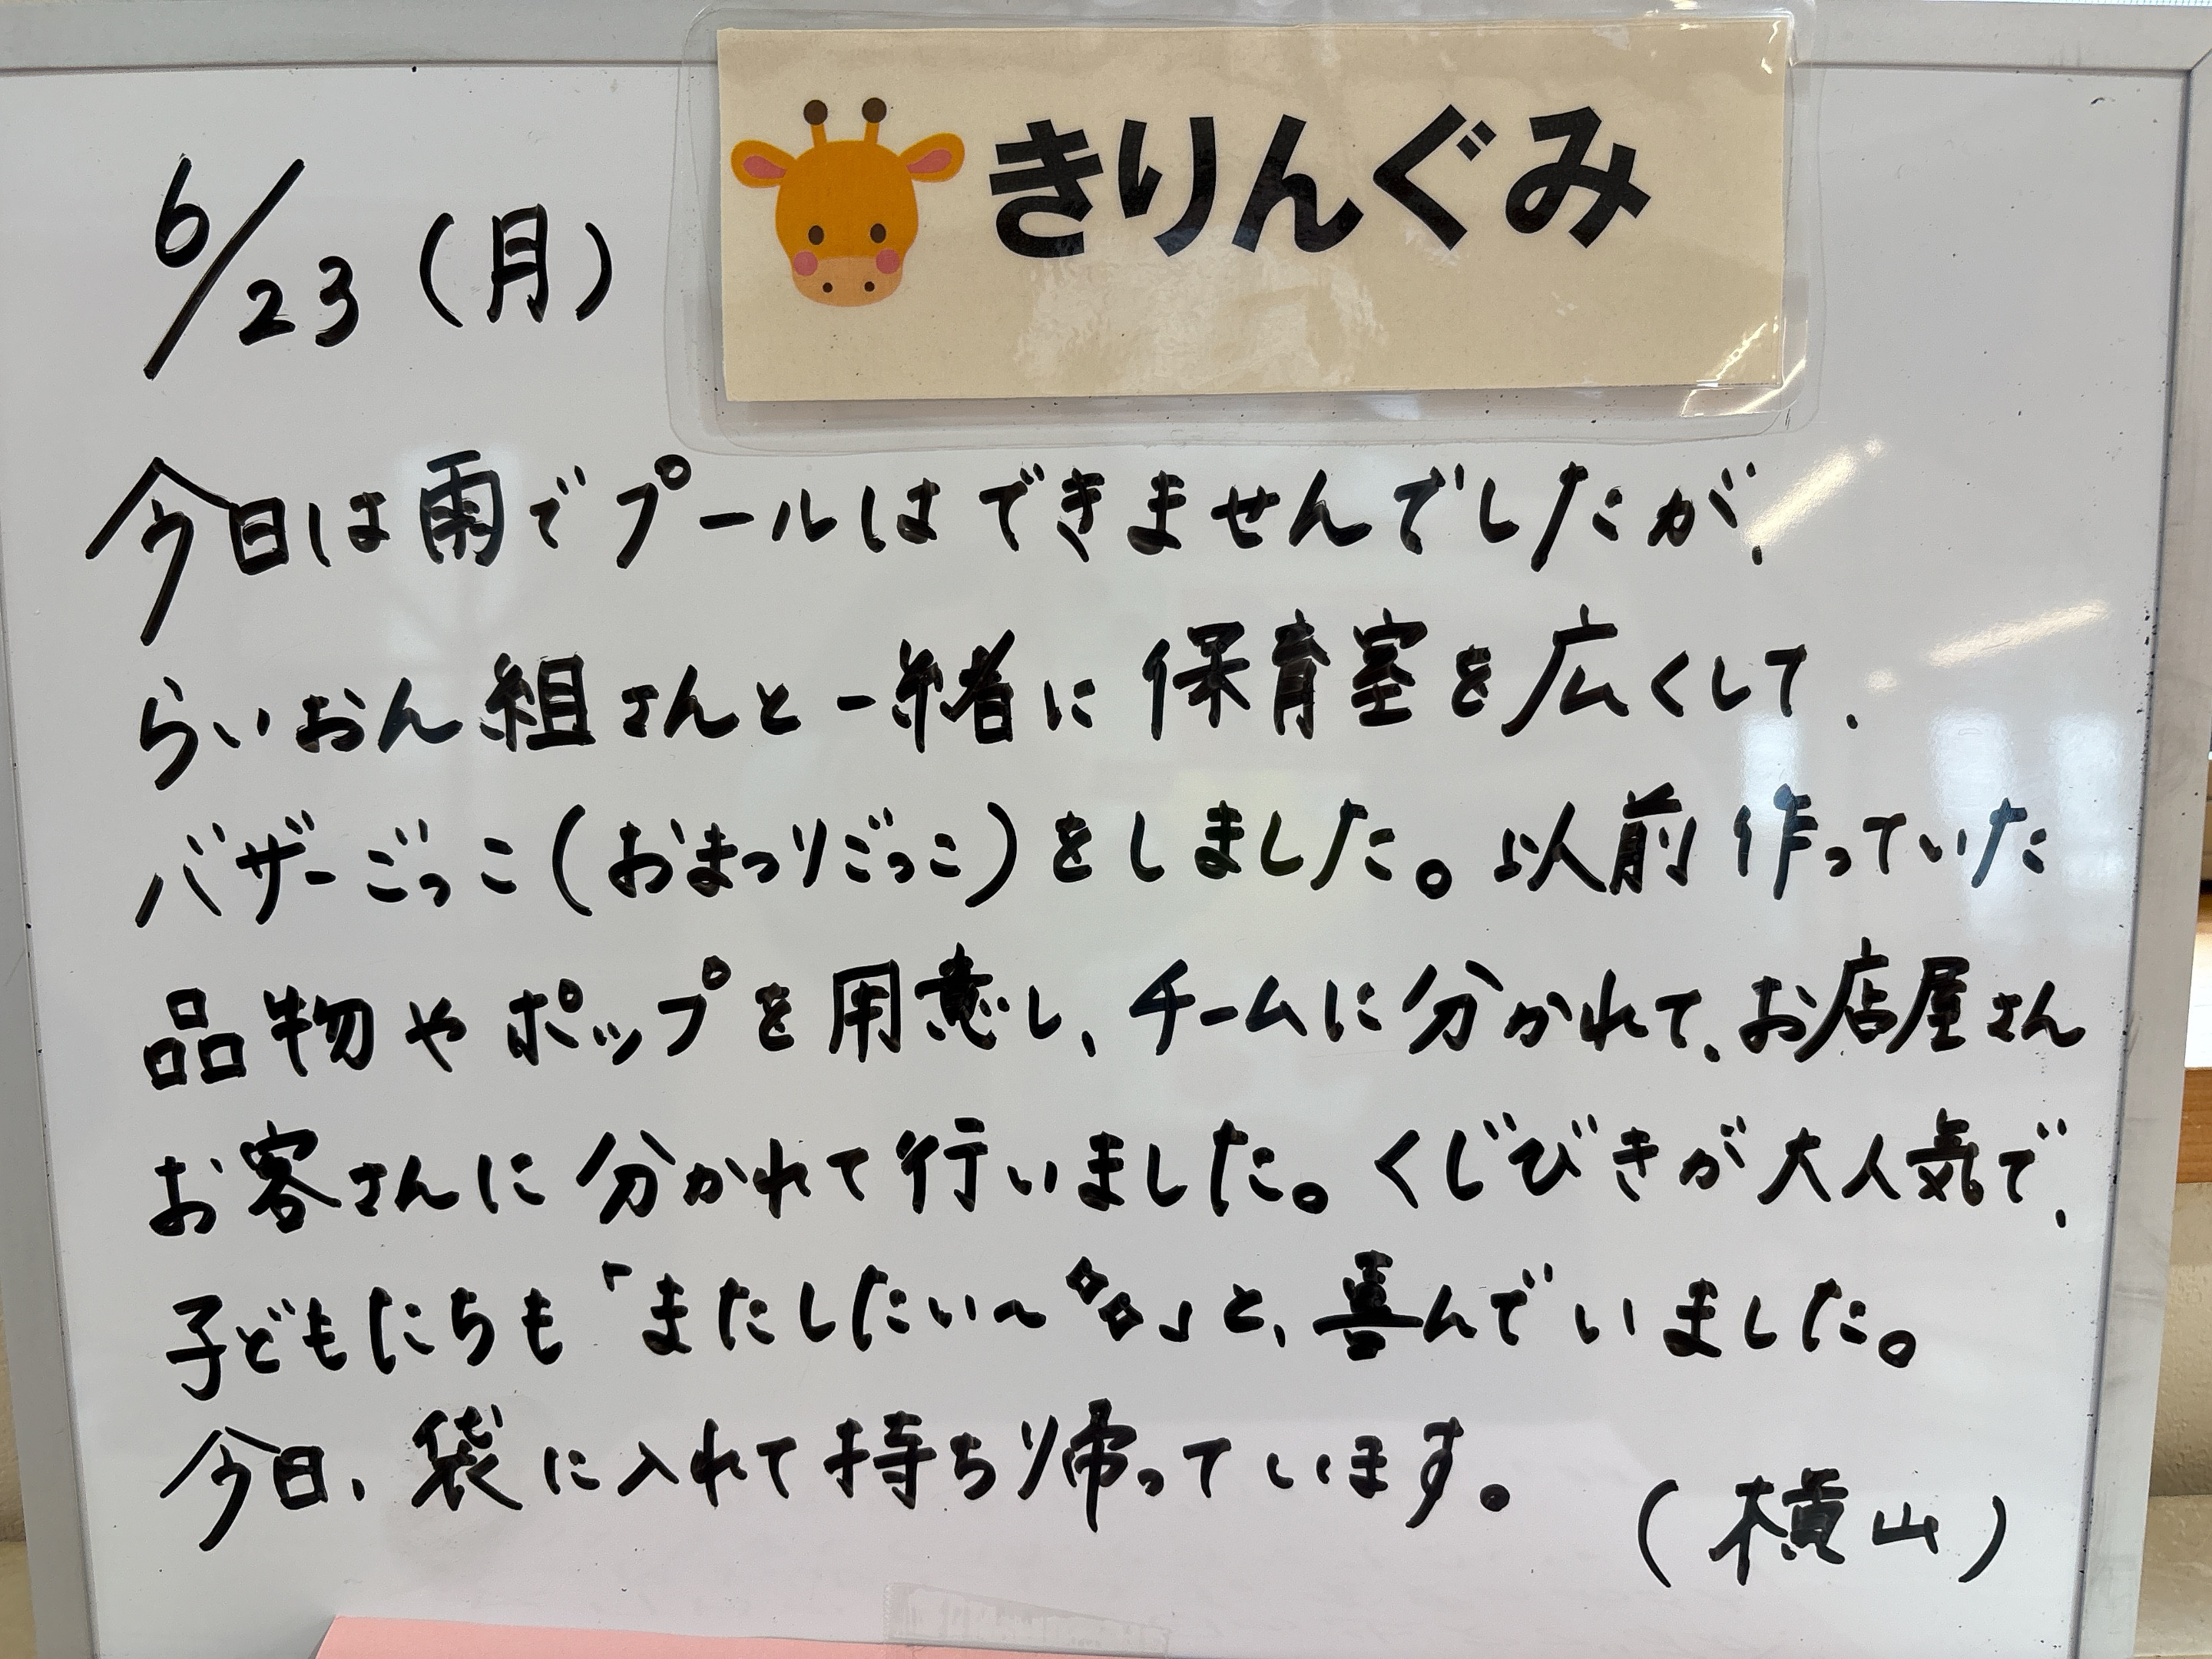 きりんぐみ
6/23（月）
今日は雨でプールはできませんでしたが、
らいおん組さんと一緒に保育室を広くして、
バザーごっこ（おまつりごっこ）をしました。以前作っていた
品物やポップを用意し、チームに分かれて、お店屋さん
お客さんに分かれて行いました。くじびきが大人気で、
子どもたちも「またしたい〜」と、喜んでいました。
今日、袋に入れて持ち帰っています。
（横山）